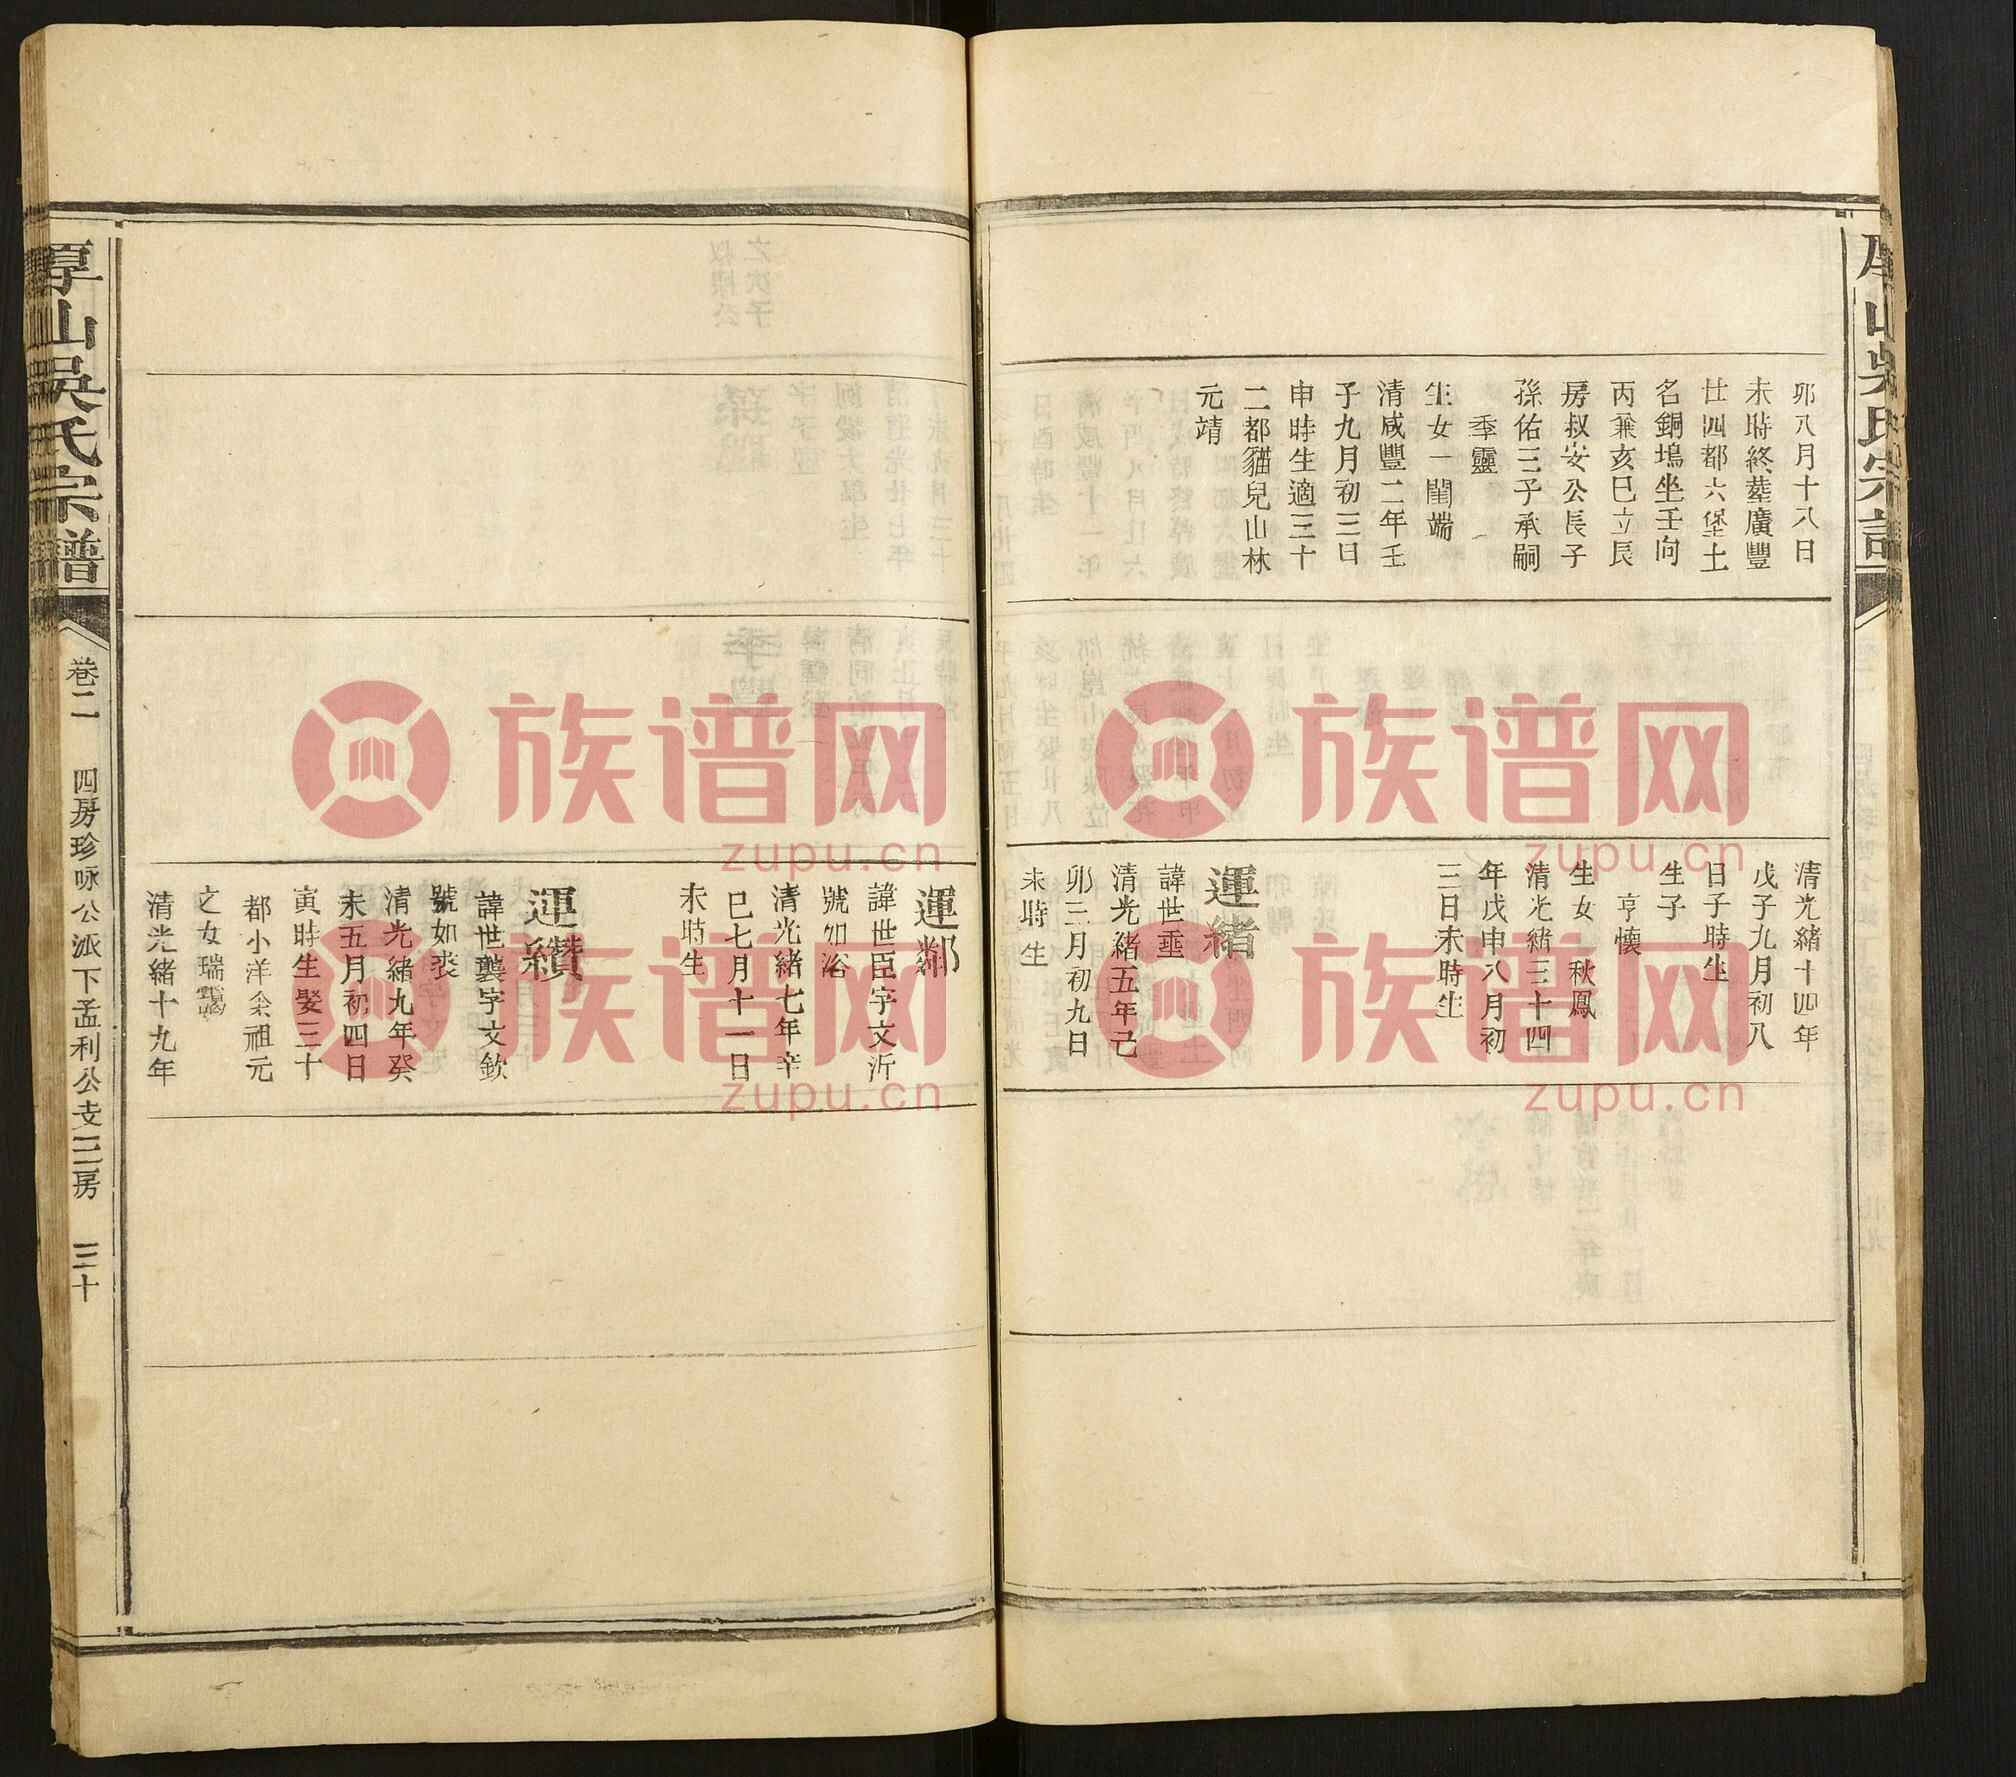 卯八月十八日
未時終塟廣豐
廿四都六堡土
名銅塢坐壬向
丙兼亥巳立長
房叔安公長子
孫佑三子承嗣
季靈
生女一閨端
清咸豐二年壬
子九月初三日
申時生適三十
二都貓兒山林
元靖
清光緒十四年
戊子九月初八
日子時生
生子
亨懷
生女 秋鳳
清光緒三十四
年戊申八月初
三日未時生
運緒
諱世埀
清光緒五年己
卯三月初九日
未時生
運鄰
諱世臣字文沂
號如浴
清光緒七年辛
巳七月十一日
未時生
運纘
諱世龔字文欽
號如裘
清光緒九年癸
未五月初四日
寅時生娶三十
都小洋余祖元
之女瑞靄
清光緒十九年
厚山吳氏宗譜
卷二 四房珍咏公派下孟利公支三房 三十
厚山吳氏宗譜
族谱网
zupu.cn
族谱网
zupu.cn
族谱网
zupu.cn
族谱网
zupu.cn